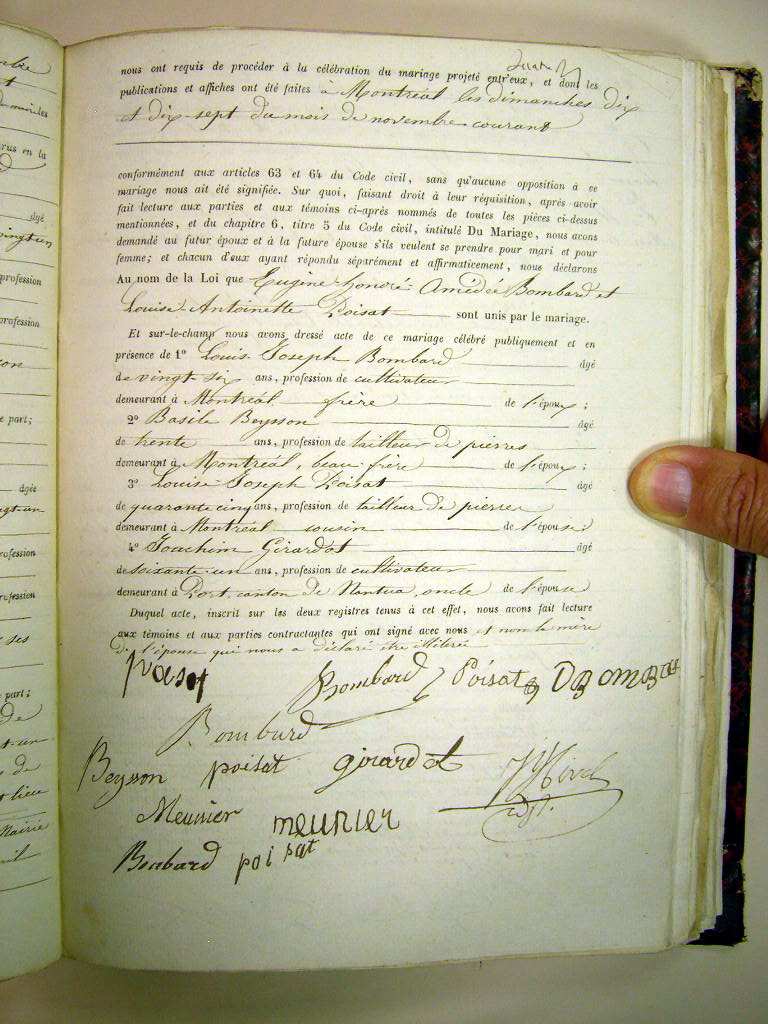 nous ont requis de procéder à la célébration du mariage projeté entr'eux, et dont les
publications et affiches ont été faites à Montréal les dimanches dix
et dix-sept du mois de novembre courant
conformément aux articles 63 et 64 du Code civil, sans qu'aucune opposition à ce
mariage nous ait été signifiée. Sur quoi, faisant droit à leur réquisition, après avoir
fait lecture aux parties et aux témoins ci-après nommés de toutes les pièces ci-dessus
mentionnées, et du chapitre 6, titre 5 du Code civil, intitulé Du Mariage, nous avons
demandé au futur époux et à la future épouse s'ils veulent se prendre pour mari et pour
femme; et chacun d'eux ayant répondu séparément et affirmativement, nous déclarons
Au nom de la Loi que Eugène honoré Amédée Bombard et
Louise Antoinette Poisat sont unis par le mariage.
Et sur-le-champ nous avons dressé acte de ce mariage célébré publiquement et en
présence de 1º Louis Joseph Bombard âgé
de vingt six ans, profession de cultivateur
demeurant à Montréal frère de l'époux;
2º Basile Beysson âgé
de trente ans, profession de tailleur de pierres
demeurant à Montréal, beau frère de l'époux;
3º Louise Joseph Poisat âgé
de quarante cinq ans, profession de tailleur de pierres
demeurant à Montréal cousin de l'épouse;
4º Joachim Girardot âgé
de soixante-un ans, profession de cultivateur
demeurant à Port, canton de Nantua, oncle de l'épouse
Duquel acte, inscrit sur les deux registres tenus à cet effet, nous avons fait lecture
aux témoins et aux parties contractantes qui ont signé avec nous et non la mère
de l'épouse qui nous a déclaré être illitérée
Bombard Poisat
Bombard
Beysson poisat girardot
Meunier meunier
Bombard poisat